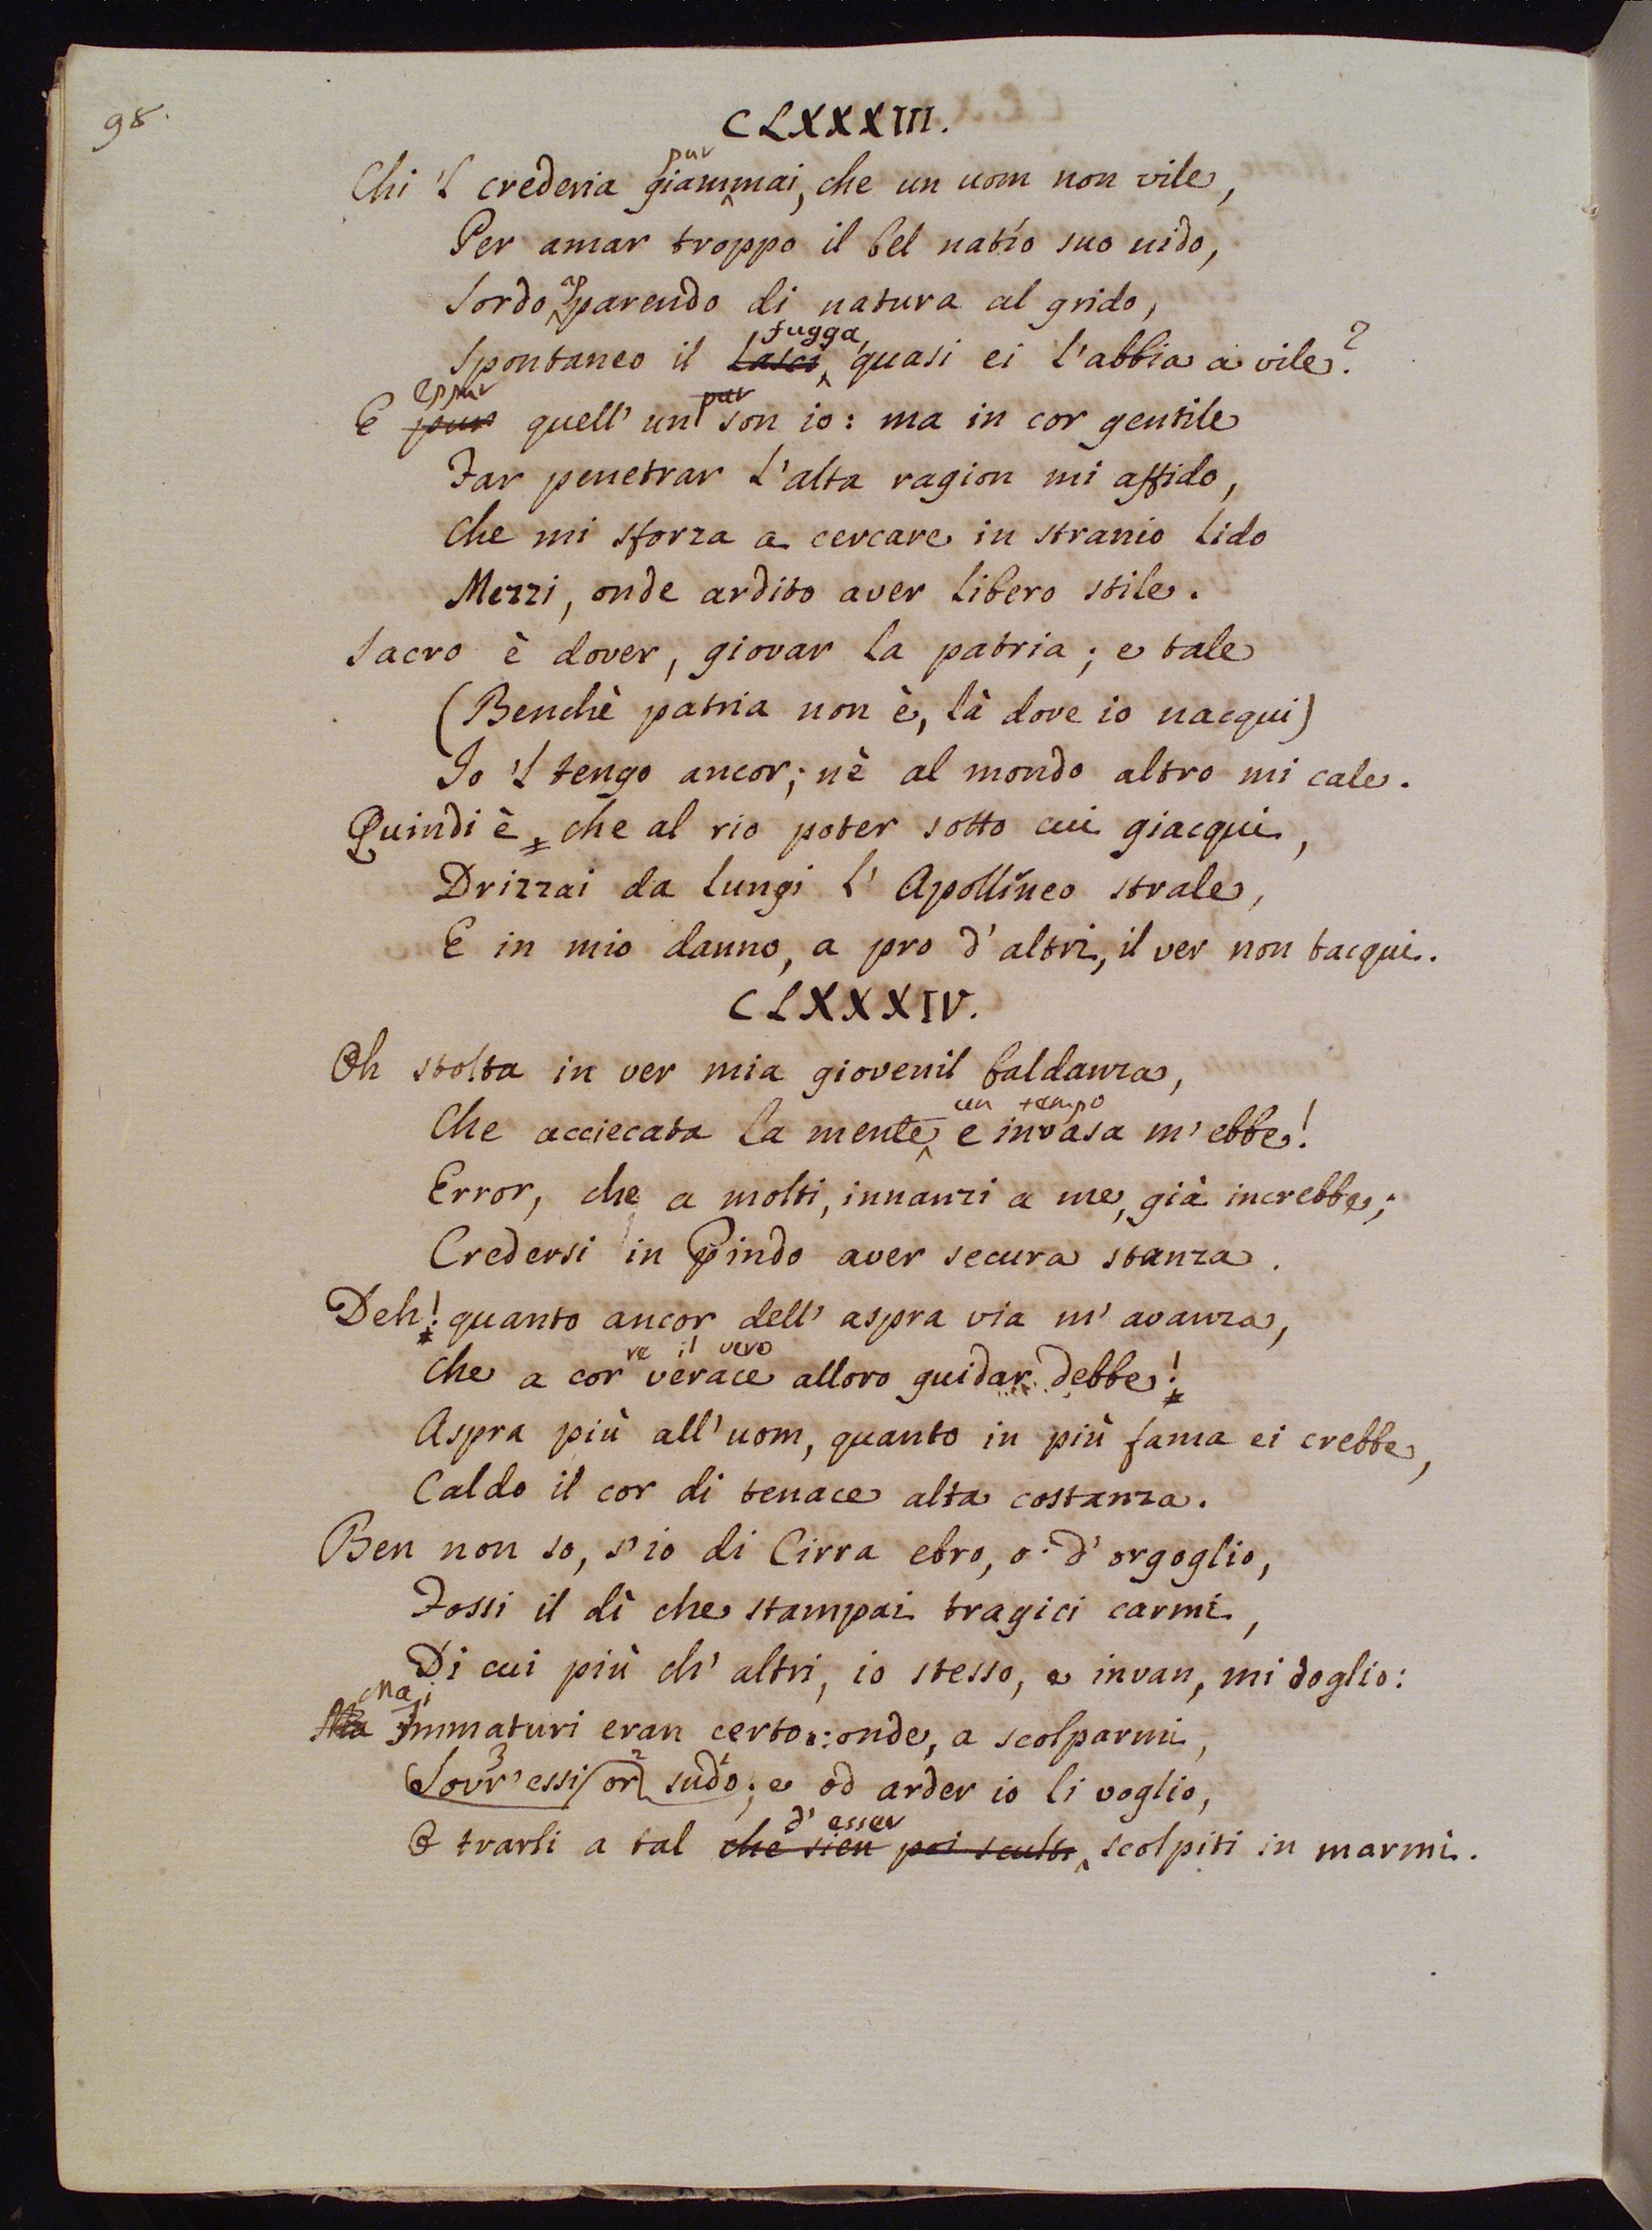 98.
CLXXXIII.
pur
Chi 'l crederia giammai, che un uom non vile,
Per amar troppo il bel natío suo nido,
ap
Sordo parendo di natura al grido,
fugga,
Spontaneo il lasci quasi ei l'abbia a vile?
eppur pur
E pur quell' un son io: ma in cor gentile
Far penetrar l'alta ragion mi affido,
Che mi sforza a cercare in stranio lido
Mezzi, onde ardito aver libero stile.
Sacro è dover, giovar la patria; e tale
(Benchè patria non è, là dove io nacqui)
Io 'l tengo ancor; nè al mondo altro mi cale.
Quindi è, che al rio poter sotto cui giacqui,
Drizzai da lungi l' Apollíneo strale,
E in mio danno, a pro d'altri, il ver non tacqui.
CLXXXIV.
Oh stolta in ver mia giovenil baldanza,
un tempo
Che acciecata la mente e invasa m' ebbe!
Error, che a molti, innanzi a me, già increbbe;
Credersi in Pindo aver secura stanza.
Deh! quanto ancor dell' aspra via m' avanza,
re il vero
Che a cor verace alloro guidar debbe!
Aspra più all'uom, quanto in più fama ei crebbe,
Caldo il cor di tenace alta costanza.
Ben non so, s'io di Cirra ebro, o d' orgoglio,
Fossi il dì che stampai tragici carmi,
Di cui più ch' altri, io stesso, e invan, mi doglio:
Ma i
Ma Immaturi eran certo: onde, a scolparmi,
3 2
Sovr' essi or sudo; e od arder io li voglio,
d' esser
O trarli a tal che sien poi sculti scolpiti in marmi.